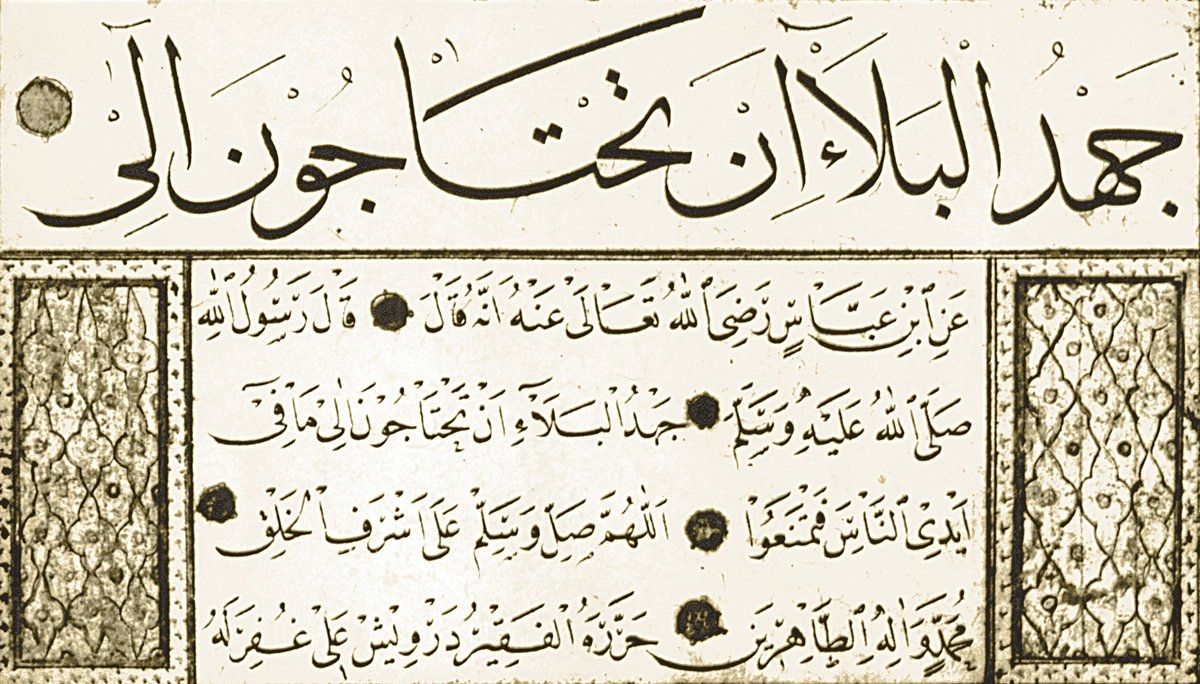 جَهْدُ الْبَلَآءِ اَنْ تَحْتَاجُوْنَ اِلٰى
عَنِ ابْنِ عَبَّاسٍ رَضِىَ اللهُ تَعَالٰى عَنْهُ اَنَّهُ قَالَ قَالَ رَسُولُ اللهِ
صَلَّى اللهُ عَلَيْهِ وَسَلَّمَ جَهْدُ الْبَلَآءِ اَنْ تَحْتَاجُونَ اِلٰى مَا فِىٓ
اَيْدِى النَّاسِ فَتُمْنَعُوا اَللّٰهُمَّ صَلِّ وَسَلِّمْ عَلَى اَشْرَفِ الْخَلْقِ
مُحَمَّدٍ وَاٰلِهِ الطَّاهِرِينَ حَرَّرَهُ الْفَقِيْرُ دَرْوِيشْ عَلِى غُفِرَ لَهُ